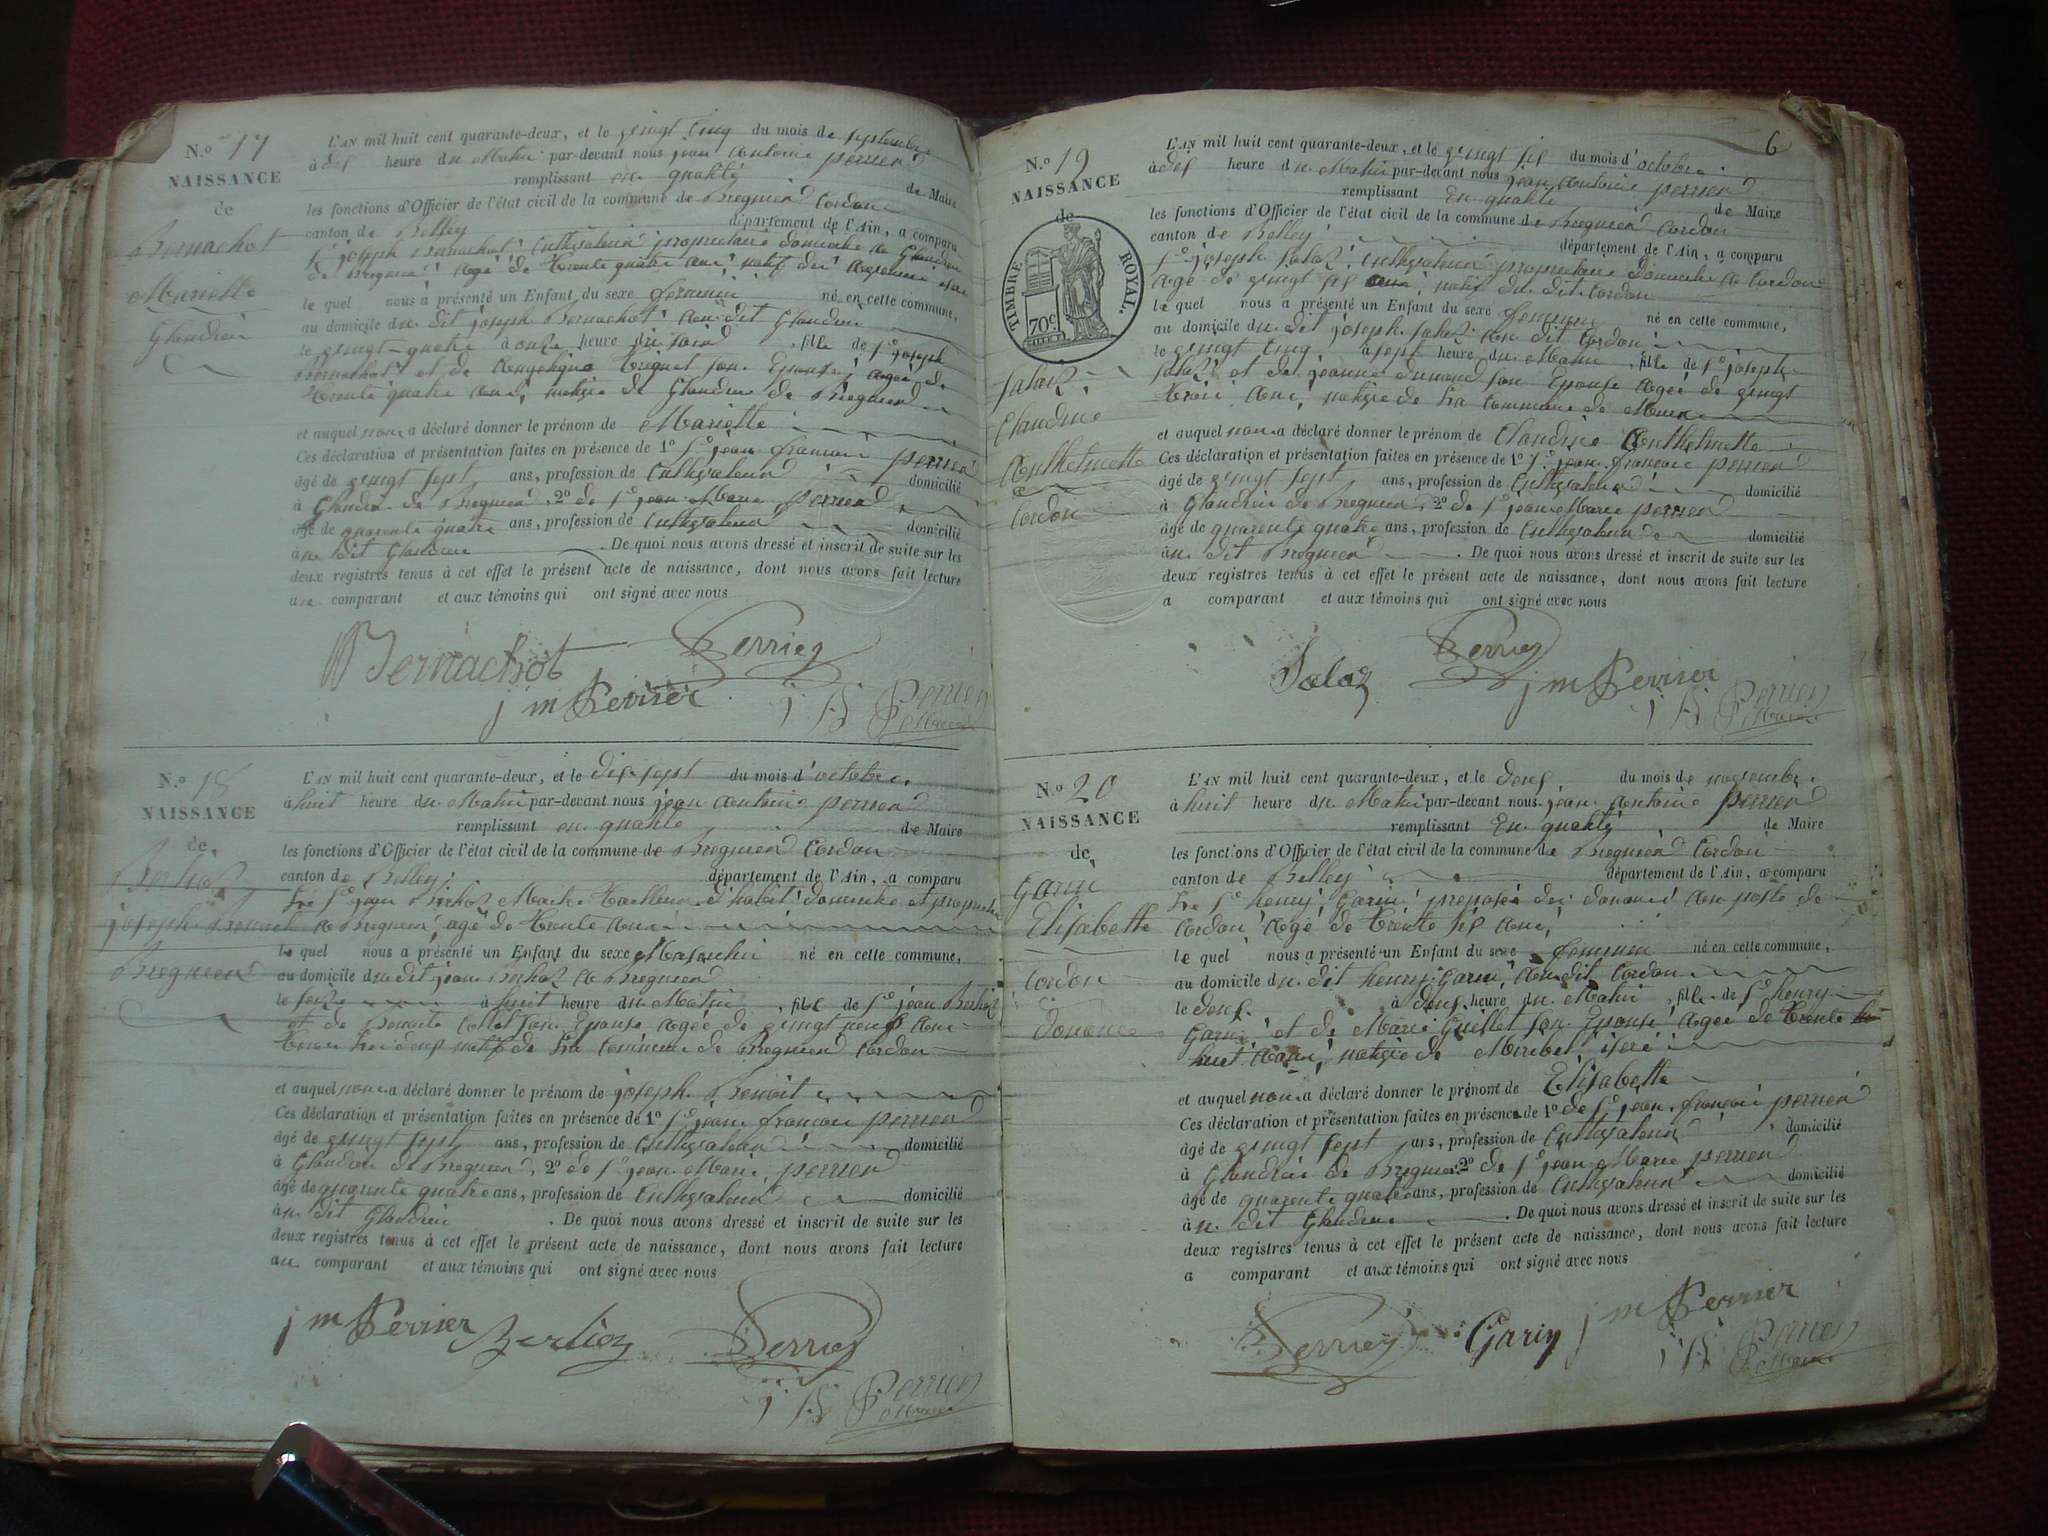 N.º 17
NAISSANCE
de
Bernachot
Mariette
Glandieu
L'AN mil huit cent quarante-deux, et le vingt cinq du mois de septembre
à dix heure du Matin par-devant nous jean antoine perrier
remplissant en qualité de Maire
les fonctions d'Officier de l'état civil de la commune de Bregnier Cordon
canton de Belley département de l'Ain, a comparu
Sr joseph Bernachot Cultivateur proprietaire domicilié à Glandieu
de Bregnier agé de trente quatre ans, natif
le quel nous a présenté un Enfant du sexe feminin né en cette commune,
au domicile du dit joseph Bernachot au dit Glandieu
le vingt-quatre à onze heure du soir, fille de Sr joseph
Bernachot et de Angelique son Epouse, agée de
trente quatre ans, native de Glandieu de Bregnier
et auquel nous a déclaré donner le prénom de Mariette
Ces déclaration et présentation faites en présence de 1º Sr jean francois perrier
âgé de vingt sept ans, profession de Cultivateur domicilié
à Glandieu de Bregnier, 2º de Sr jean Marie perrier
âgé de quarente quatre ans, profession de Cultivateur domicilié
au dit Glandieu. De quoi nous avons dressé et inscrit de suite sur les
deux registres tenus à cet effet le présent acte de naissance, dont nous avons fait lecture
au comparant et aux témoins qui ont signé avec nous
Bernachot Perrier
j m Perrier
j A Perrier
Maire
N.º 18
NAISSANCE
de
Berlioz
joseph Benoit
Bregnier
L'AN mil huit cent quarante-deux, et le dix sept du mois d'octobre
à huit heure du Matin par-devant nous jean antoine perrier
remplissant en qualité de Maire
les fonctions d'Officier de l'état civil de la commune de Bregnier Cordon
canton de Belley département de l'Ain, a comparu
Le Sr jean Berlioz Maitre tailleur d'habit domicilié et proprietaire
a Bregnier, agé de trente ans
le quel nous a présenté un Enfant du sexe Masculin né en cette commune,
au domicile du dit jean Berlioz a Bregnier
le seize à huit heure du Matin, fils de Sr jean Berlioz
et de Benoite Collet son Epouse agée de vingt neuf ans
tous les deux natif de la Commune de Bregnier Cordon
et auquel nous a déclaré donner le prénom de joseph Benoit
Ces déclaration et présentation faites en présence de 1º Sr jean francois perrier
âgé de vingt sept ans, profession de Cultivateur domicilié
à Glandieu de Bregnier, 2º de Sr jean Marie perrier
âgé de quarente quatre ans, profession de Cultivateur domicilié
au dit Glandieu. De quoi nous avons dressé et inscrit de suite sur les
deux registres tenus à cet effet le présent acte de naissance, dont nous avons fait lecture
au comparant et aux témoins qui ont signé avec nous
j m Perrier Berlioz Perrier
j A Perrier
Maire
6
N.º 19
NAISSANCE
de
TIMBRE ROYAL.
70c
Salaz
Claudine
Anthelmette
Cordon
L'AN mil huit cent quarante-deux, et le vingt six du mois d'octobre
à dix heure du Matin par-devant nous jean antoine perrier
remplissant En qualité de Maire
les fonctions d'Officier de l'état civil de la commune de Bregnier Cordon
canton de Belley département de l'Ain, a comparu
Sr joseph Salaz, Cultivateur proprietaire domicilié a Cordon
agé de vingt six ans, natif du dit Cordon
le quel nous a présenté un Enfant du sexe feminin né en cette commune,
au domicile du dit joseph Salaz au dit Cordon
le vingt cinq à sept heure du Matin, fille de Sr joseph
Salaz et de jeanne dumond son Epouse agée de vingt
trois ans, native de la Commune de Murs
et auquel nous a déclaré donner le prénom de Claudine Anthelmette
Ces déclaration et présentation faites en présence de 1º Sr jean francois perrier
âgé de vingt sept ans, profession de Cultivateur domicilié
à Glandieu de Bregnier, 2º de Sr jean Marie perrier
âgé de quarente quatre ans, profession de Cultivateur domicilié
au dit Bregnier. De quoi nous avons dressé et inscrit de suite sur les
deux registres tenus à cet effet le présent acte de naissance, dont nous avons fait lecture
a comparant et aux témoins qui ont signé avec nous
Salaz Perrier j m Perrier
j A Perrier
Maire
N.º 20
NAISSANCE
de
Garin
Elisabette
Cordon
Douance
L'AN mil huit cent quarante-deux, et le deux du mois de novembre
à huit heure du Matin par-devant nous jean antoine perrier
remplissant En qualité de Maire
les fonctions d'Officier de l'état civil de la commune de Bregnier Cordon
canton de Belley département de l'Ain, a comparu
Le Sr henry Garin preposé des douanes au poste de
Cordon agé de trente six ans,
le quel nous a présenté un Enfant du sexe feminin né en cette commune,
au domicile du dit henry Garin, au dit Cordon
le deux à deux heure du Matin, fille de Sr henry
Garin et de Marie Guillet son Epouse agée de trente
huit ans, native de Miribel, isere
et auquel nous a déclaré donner le prénom de Elisabette
Ces déclaration et présentation faites en présence de 1º de Sr jean francois perrier
âgé de vingt sept ans, profession de Cultivateur domicilié
à Glandieu de Bregnier 2º de Sr jean Marie perrier
âgé de quarente quatre ans, profession de Cultivateur domicilié
à u dit Glandieu. De quoi nous avons dressé et inscrit de suite sur les
deux registres tenus à cet effet le présent acte de naissance, dont nous avons fait lecture
a comparant et aux témoins qui ont signé avec nous
Perrier Garin j m Perrier
j A Perrier
Maire